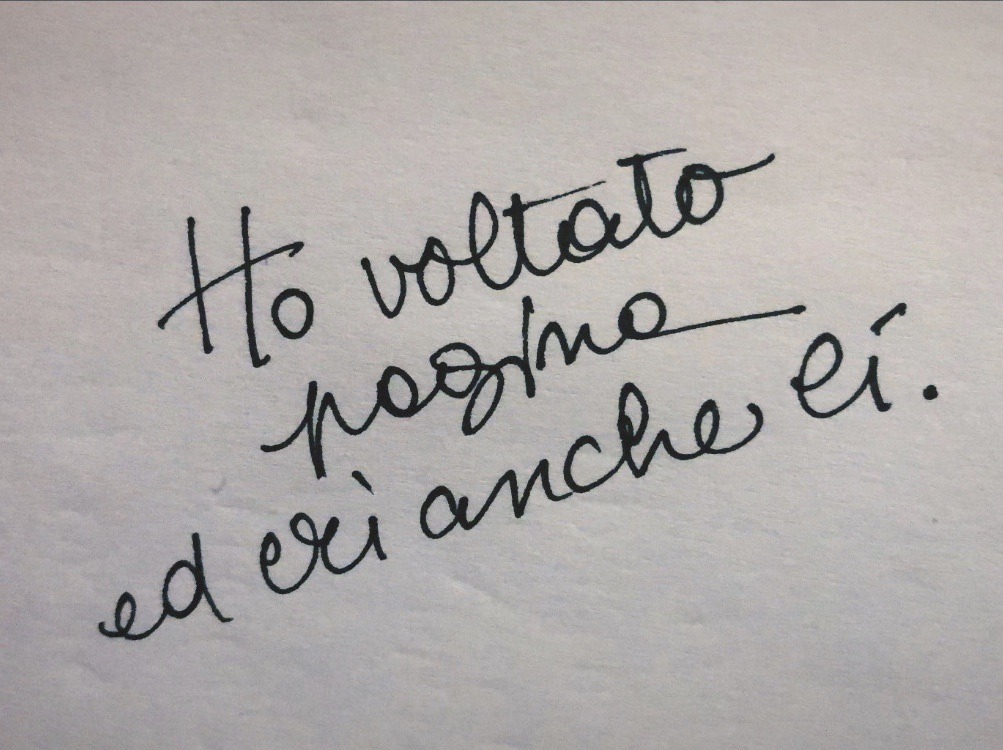 Ho voltato
pagina
ed eri anche lí.